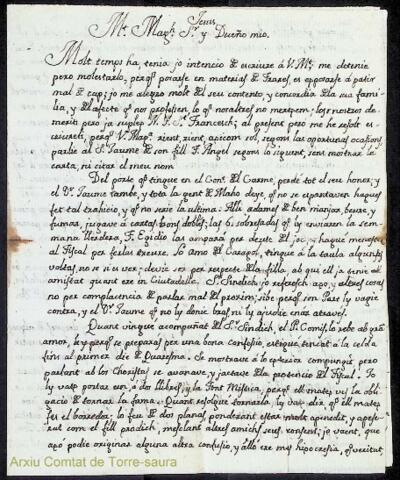 Jesus
Mt. Magh. Sr. y Dueño mio.
Molt temps ha, tenia jo intenció de escriure á V.M. me detenie
pero molestarlo, perqe posarse en materias de Frares, es exposarse á patir
mal de cap; jo me alegro molt del seu contento, y concordia de la sua fami-
lia, y del afecte qe nos professan, lo qe noraltres no merexem,
merits pero ja supleix N. P. S. Francesch; al present pero me he resolt es-
criureli, perqe V. Mag. rient, rient, apicom sol, segons las oportunas ocasions
parlie al Sr. Jaume, y son fill F. Angel segons lo siguent, sens mostrar la
carta, ni citar el meu nom
Del porte qe tingue en el Cont. del Carme, perdé tot el seu honor; y
el Vt. Jaume també, y tota la gent de Mahó deye, qe no se espantaven hagues
fet tal traició, y qe no serie la ultima. Allá ademes de ben manjar, beure, y
fumar, jugave á cartas bons doblets; las 6, sobresadas qe ly enviaren la sem-
mana Verdera, F. Egidio las ampará per deute del joc, y hagué menester
al Fiscal per ferlas traure. So amo de Caragol, tingue á la taula algunas
voltas, no se si u ver; devie ser per respecte de la filla, ab qui ell ja tenie de
amistat quant ere en Ciutadella. Sr. Sindich jo refresch açó, y altres cosas
no per complacencia de parlar mal del proxim; sibe perqe son Pare ly vagie
contra, y el Vt. Jaume qe no ly donie braç ni ly ajudie anar atravers.
Quant vingue acompañat del Sr. Sindich, el P. Comis. lo rebé ab gran
amor, perqe se preparas per una bona confessio, estigue tancat á la celda
fins al primer die de Quaresma. Se mostrave á lo exterior compungit pero
parlant ab los Choristas se avanave, y jactave de la protecció del Fiscal. Jo
ly vatx portar un, ó dos llibres, y la Font Mistica, perqe ell mateix ves la obli-
gació de tornar la fama. Quant resolgue tornarla, ly vatx dir qe ell mateix
fes el borrador; lo feu de dos planas ponderant estar molt apenedit, y apese-
rat com el fill prodich, mesclant altres amichs seus, consent; jo vaent, que
açó podie originar alguna altra confusio, y alló ere mes hipocresia, qe veritat,
Arxiu Comtat de Torre-saura